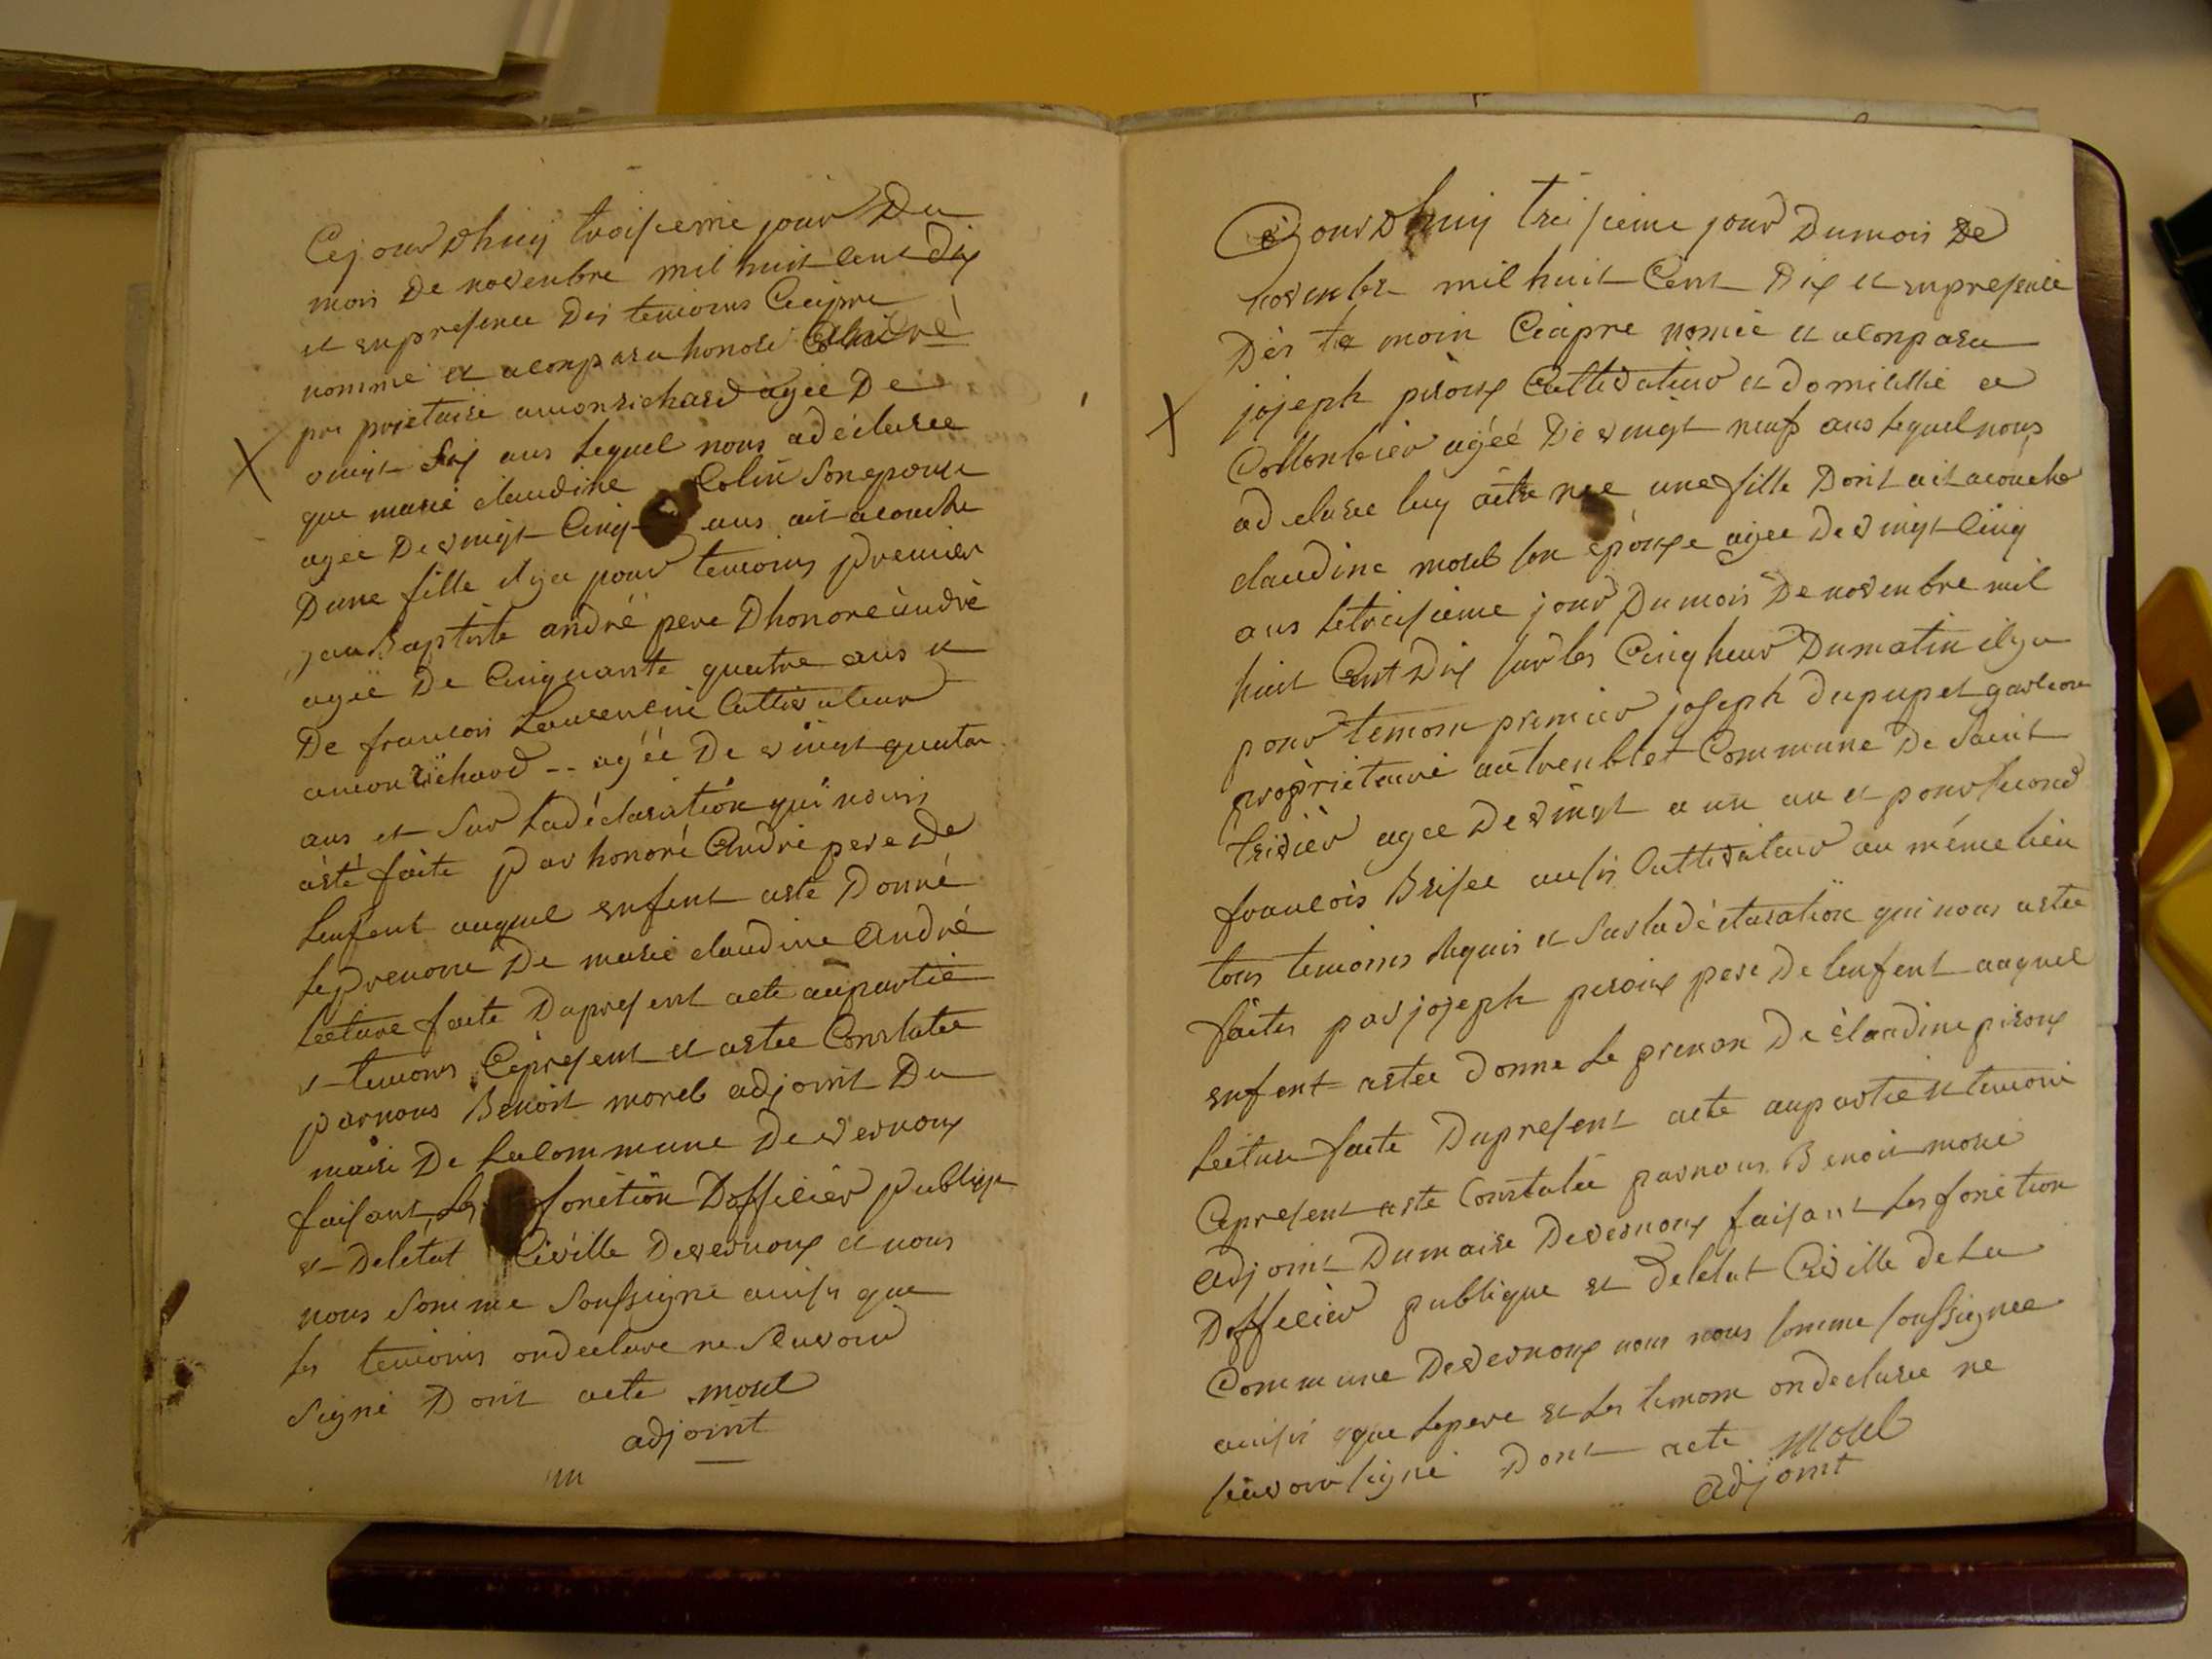 Cejourdhuy troisieme jour Du
mois De novenbre mil huit cent dix
et enpresence Des temoins Ceapre
nommé et aconparu honoré André
pro prietaire amonrichard agée De
vingt six ans lequel nous adéclaree
que marie claudine Colin Son epouse
agée De vingt Cinq ans ait acouche
Dune fille il ya pour temoins premier
jean Baptiste andré pere Dhonoré andré
agée De Cinquante quatre ans et
De francois Laurencin Cultivateur
amonrichard -- agéé De vingt quatre
ans et Sur ladéclaration qui nous
aété faite par honoré André pere De
Lenfent auquel enfent asté Donné
Leprenom De marie claudine André
Lecture faite Dupresent acte auxpartie
et temoins Cepresent et astee Constatée
parnous Benoit morel adjoint Du
maire De Lacommune De vernoux
faisant les fonction Dofficier publique
et Deletat Civille Devernoux et nous
nous Somme Soussigne ainsy que
les temoins ondeclare ne Seavoir
Signé Dont acte morel
adjoint
Cejourdhuy treisieme jour Dumois De
novenbre mil huit Cent Dix et enpresence
Dès te moin Ceapre nomée et aconparu
jojeph piroux Cultivateur et domicillié a
Collonbier agéé De vingt neuf ans lequel nous
adclaree luy aitre née une fille Dont ait acouche
claudine morel son épouse agee De vingt Cinq
ans letreisieme jour Dumois De novenbre mil
huit Cent Dix surles Cinq heur Dumatin ilya
pour temoin premier joseph dupupet garcon
propriétaire autrenblet Commune De Saint
trivier agee De vingt e un an et pour second
francois Brisee aussi Cultivateur au même lieu
tous temoins Requis et Surladéclaration qui nous astee
faites par jojeph piroux pere De lenfent auquel
enfent astee donne Le prenon De claudine piroux
Lecture faite Dupresent acte aupartie et temoin
Cepresent asté Constatée parnous Benoit morel
adjoint Dumaire Devernoux faisant les fonction
Dofficier publique et deletat Civille dela
Commune Devernoux nous nous somme soussignee
ainsi que lepere et les temoin ondeclaree ne
seavoir signé Dont acte Morel
adjoint